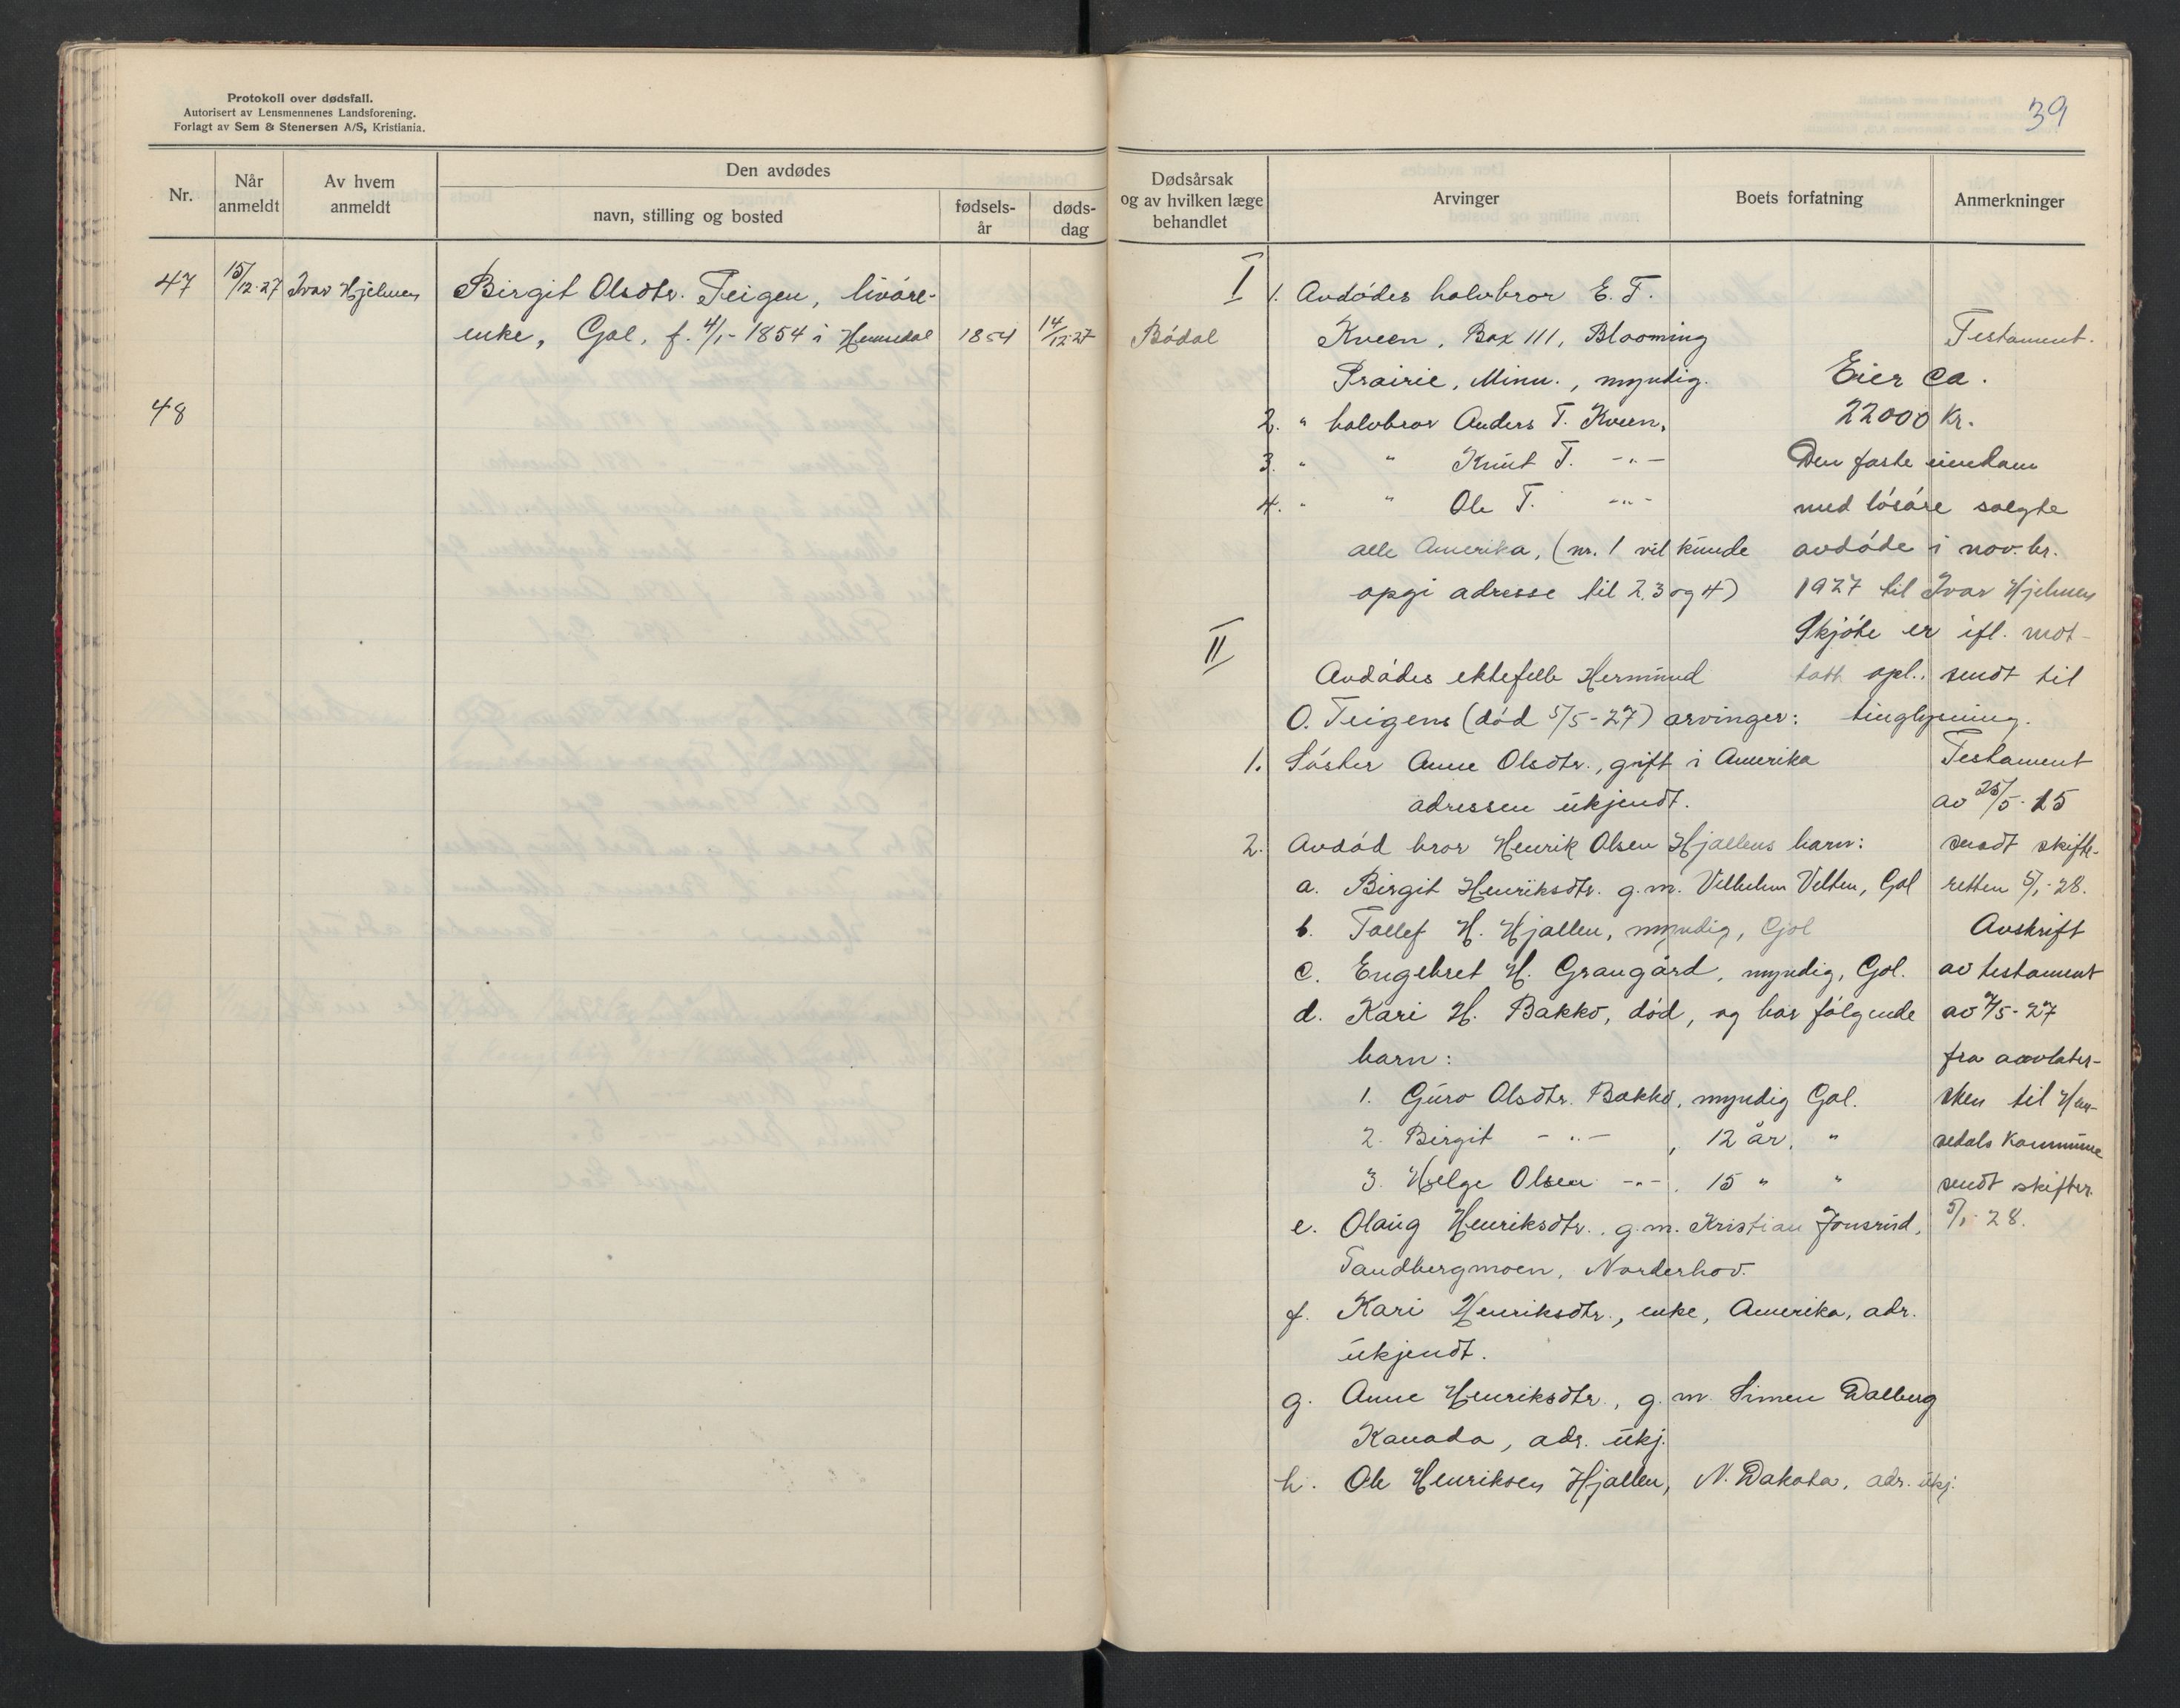 Protokoll over dødsfall.
Autorisert av Lensmennenes Landsforening.
Forlagt av Sem & Stenersen A/S, Kristiania.
39
Nr.
Når anmeldt
Av hvem anmeldt
Den avdødes
navn, stilling og bosted
fødsels-år
døds-dag
Dødsårsak og av hvilken læge behandlet
Arvinger
Boets forfatning
Anmerkninger
47 15/12-27 Ivar Hjelmen Birgit Olsdtr. Teigen, livøre-
enke, Gol, f. 4/1-1854 i Hemsedal 1854 14/12-27
48
Bødal
I 1. Avdødes halvbror E. T.
Kveen, Box 111, Blooming
Prairie, Minn., myndig.
2. " halvbror Anders T. Kveen,
3. " " Knut T. -"-
4. " " Ole T. -"-
alle Amerika, (nr. 1 vil kunde
opgi adresse til 2, 3 og 4)
II
Avdødes ektefelle Hermund
O. Teigens (død 5/5-27) arvinger:
1. Søster Anne Olsdtr., gift i Amerika
adressen ukjendt.
2. Avdød bror Henrik Olsen Hjallens barn:
a. Birgit Henriksdtr. g.m. Vilhelm Velten, Gol
b. Tollef H. Hjallen, myndig, Gol
c. Engebret H. Graugård, myndig, Gol.
d. Kari H. Bakko, død, og har følgende
barn:
1. Guro Olsdtr. Bakko, myndig Gol.
2. Birgit -"- , 12 år, "
3. Helge Olsen -"-, 15 " "
e. Olaug Henriksdtr., g.m. Kristian Jonsrud,
Tandbergmoen, Norderhov.
f. Kari Henriksdtr., enke, Amerika, adr.
ukjendt.
g. Anne Henriksdtr., g.m. Simen Dalberg
Kanada, adr. ukj.
h. Ole Henriksen Hjallen, N. Dakota, adr. ukj.
Eier ca.
22000 kr.
Den faste eiendom
med løsøre solgte
avdøde i nov. br.
1927 til Ivar Hjelmen
Skjøte er ifl. mot-
tatt opl. sendt til
tinglysning.
Testament.
Testament
av 25/5-15
sendt skifte-
retten 5/1-28.
Avskrift
av testament
av 7/5-27
fra
sken til Hem-
sedals kommune
sendt skifter.
5/1-28.